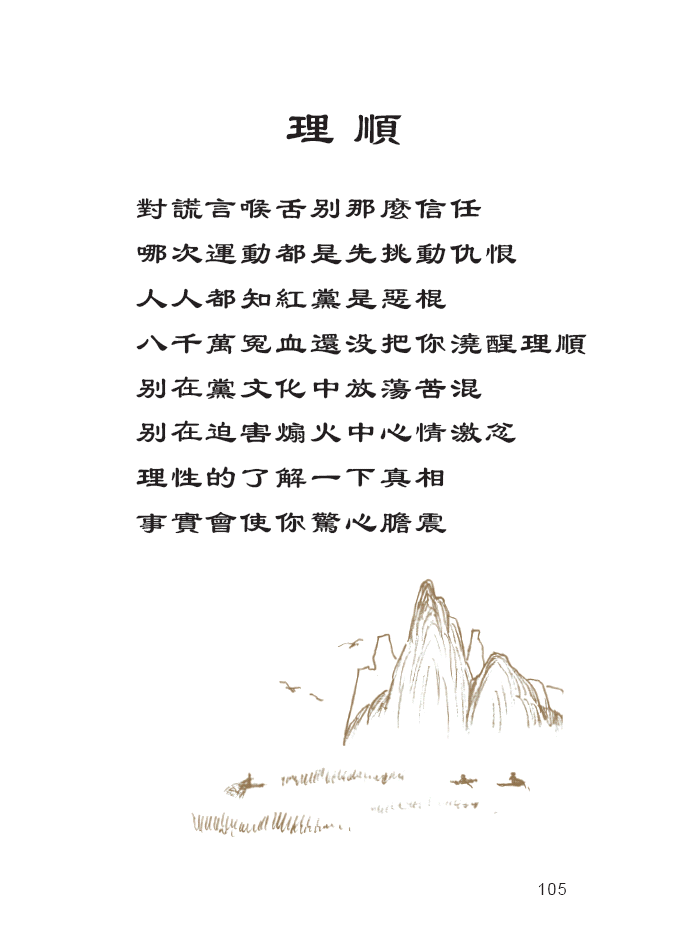 理順
對謊言喉舌别那麼信任
哪次運動都是先挑動仇恨
人人都知紅黨是惡棍
八千萬冤血還没把你澆醒理順
别在黨文化中放蕩苦混
别在迫害煽火中心情激忿
理性的了解一下真相
事實會使你驚心膽震
105